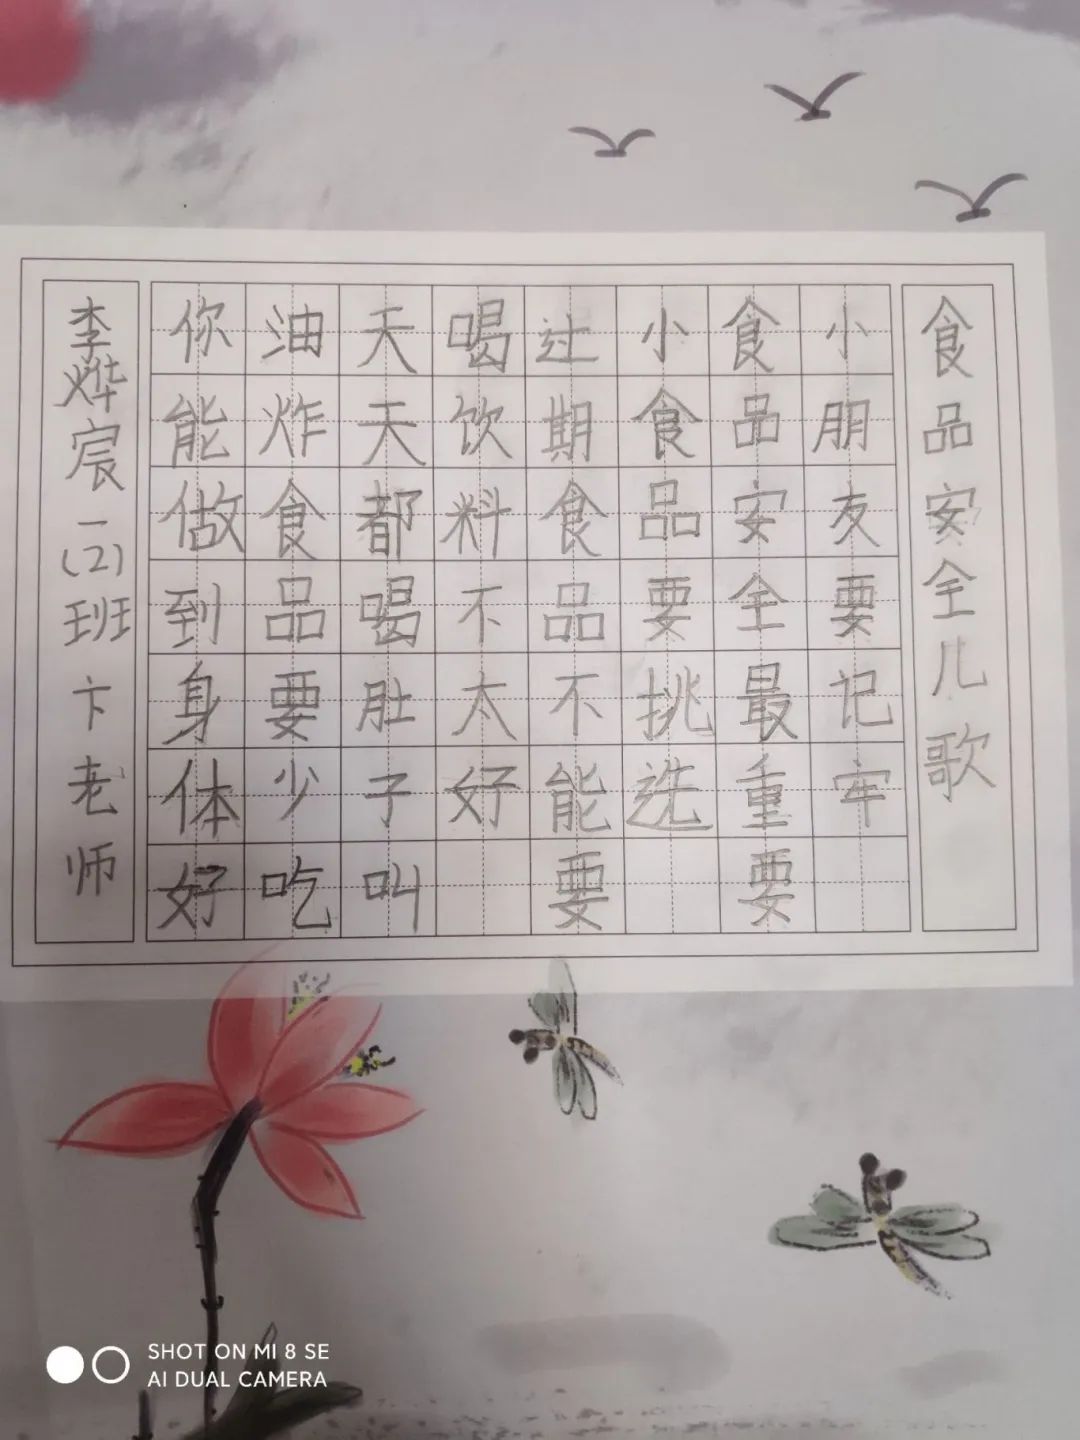 食品安全儿歌
小朋友要记牢
食品安全最重要
小食品要挑选
过期食品不能要
喝饮料不太好
天天都喝肚子叫
油炸食品要少吃
你能做到身体好
李烨宸一(2)班卞老师
SHOT ON MI 8 SE
AI DUAL CAMERA